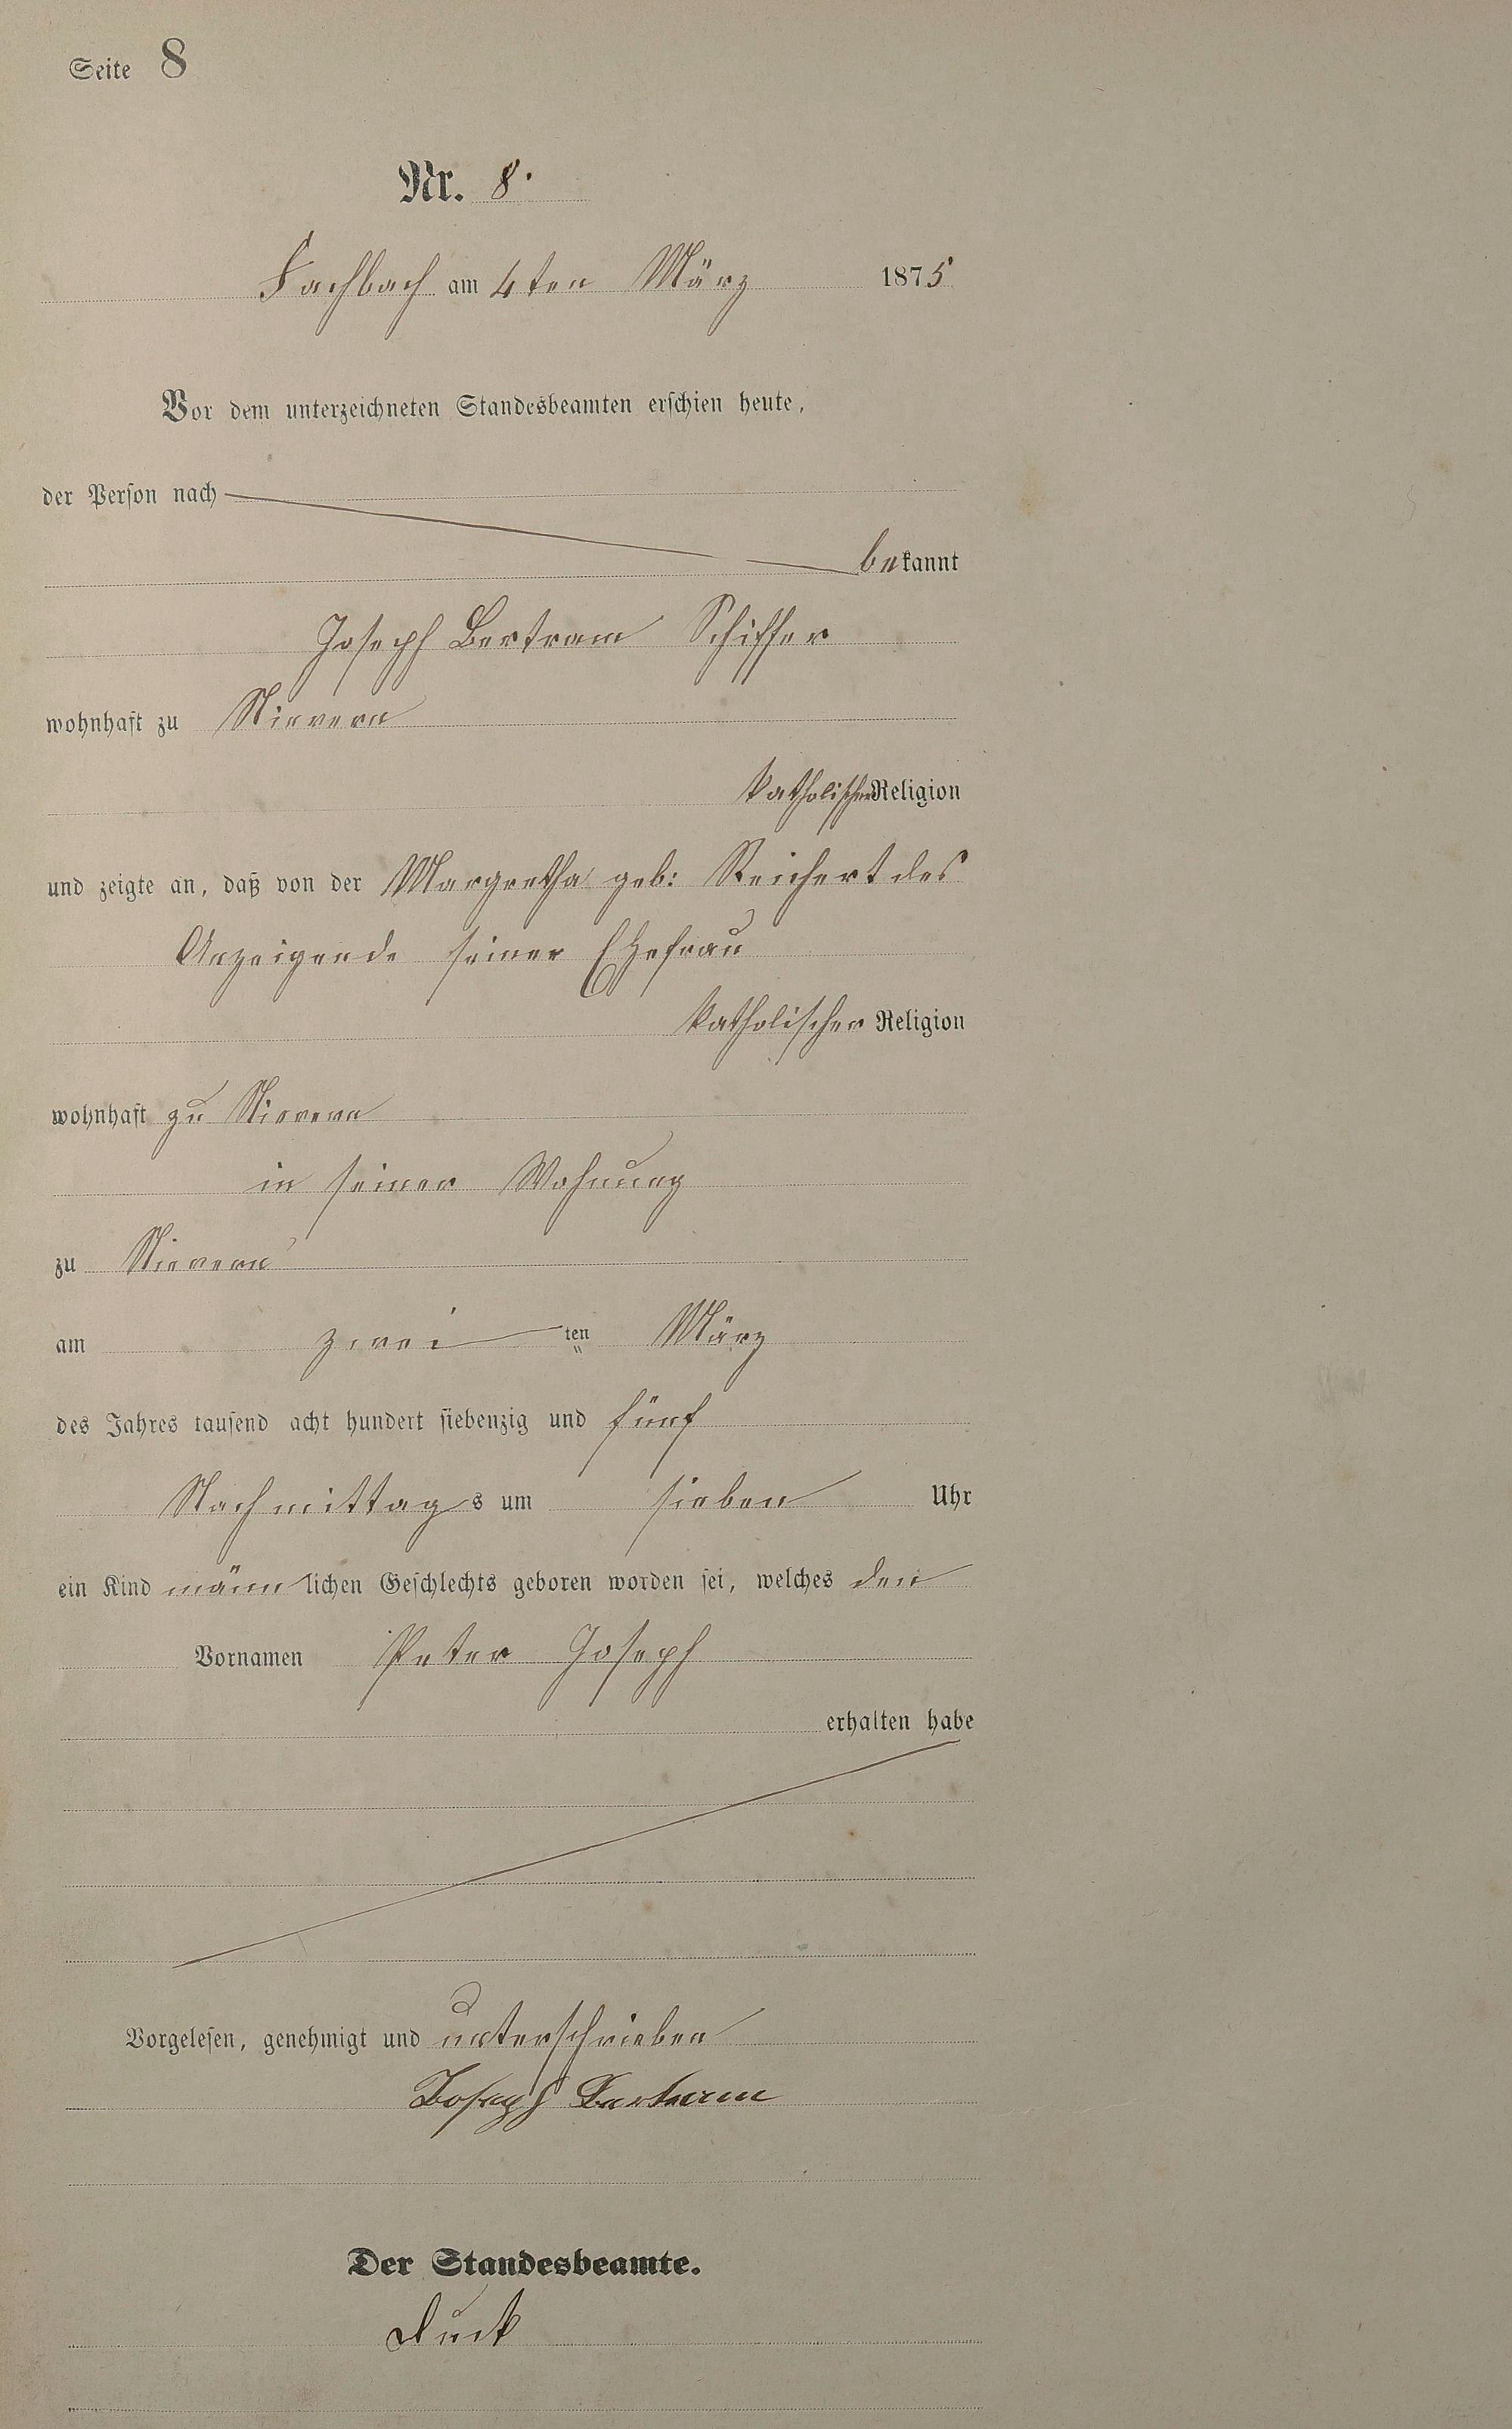 Seite 8
Nr. 8.
Fachbach am 4ten März 1875
Vor dem unterzeichneten Standesbeamten erschien heute,
der Person nach
bekannt
Joseph Bertram Schiffer
wohnhaft zu Nievern
katholischer Religion
und zeigte an, daß von der Margretha geb: Reichert des
Anzeigende seiner Ehefrau
katholischer Religion
wohnhaft zu Nievern
in seiner Wohnung
zu Nievern
am zwei ten März
des Jahres tausend acht hundert siebenzig und fünf
Nachmittags um sieben Uhr
ein Kind männlichen Geschlechts geboren worden sei, welches den
Vornamen Peter Joseph
erhalten habe
Vorgelesen, genehmigt und unterschrieben
Joseph Bertram
Der Standesbeamte.
Duck